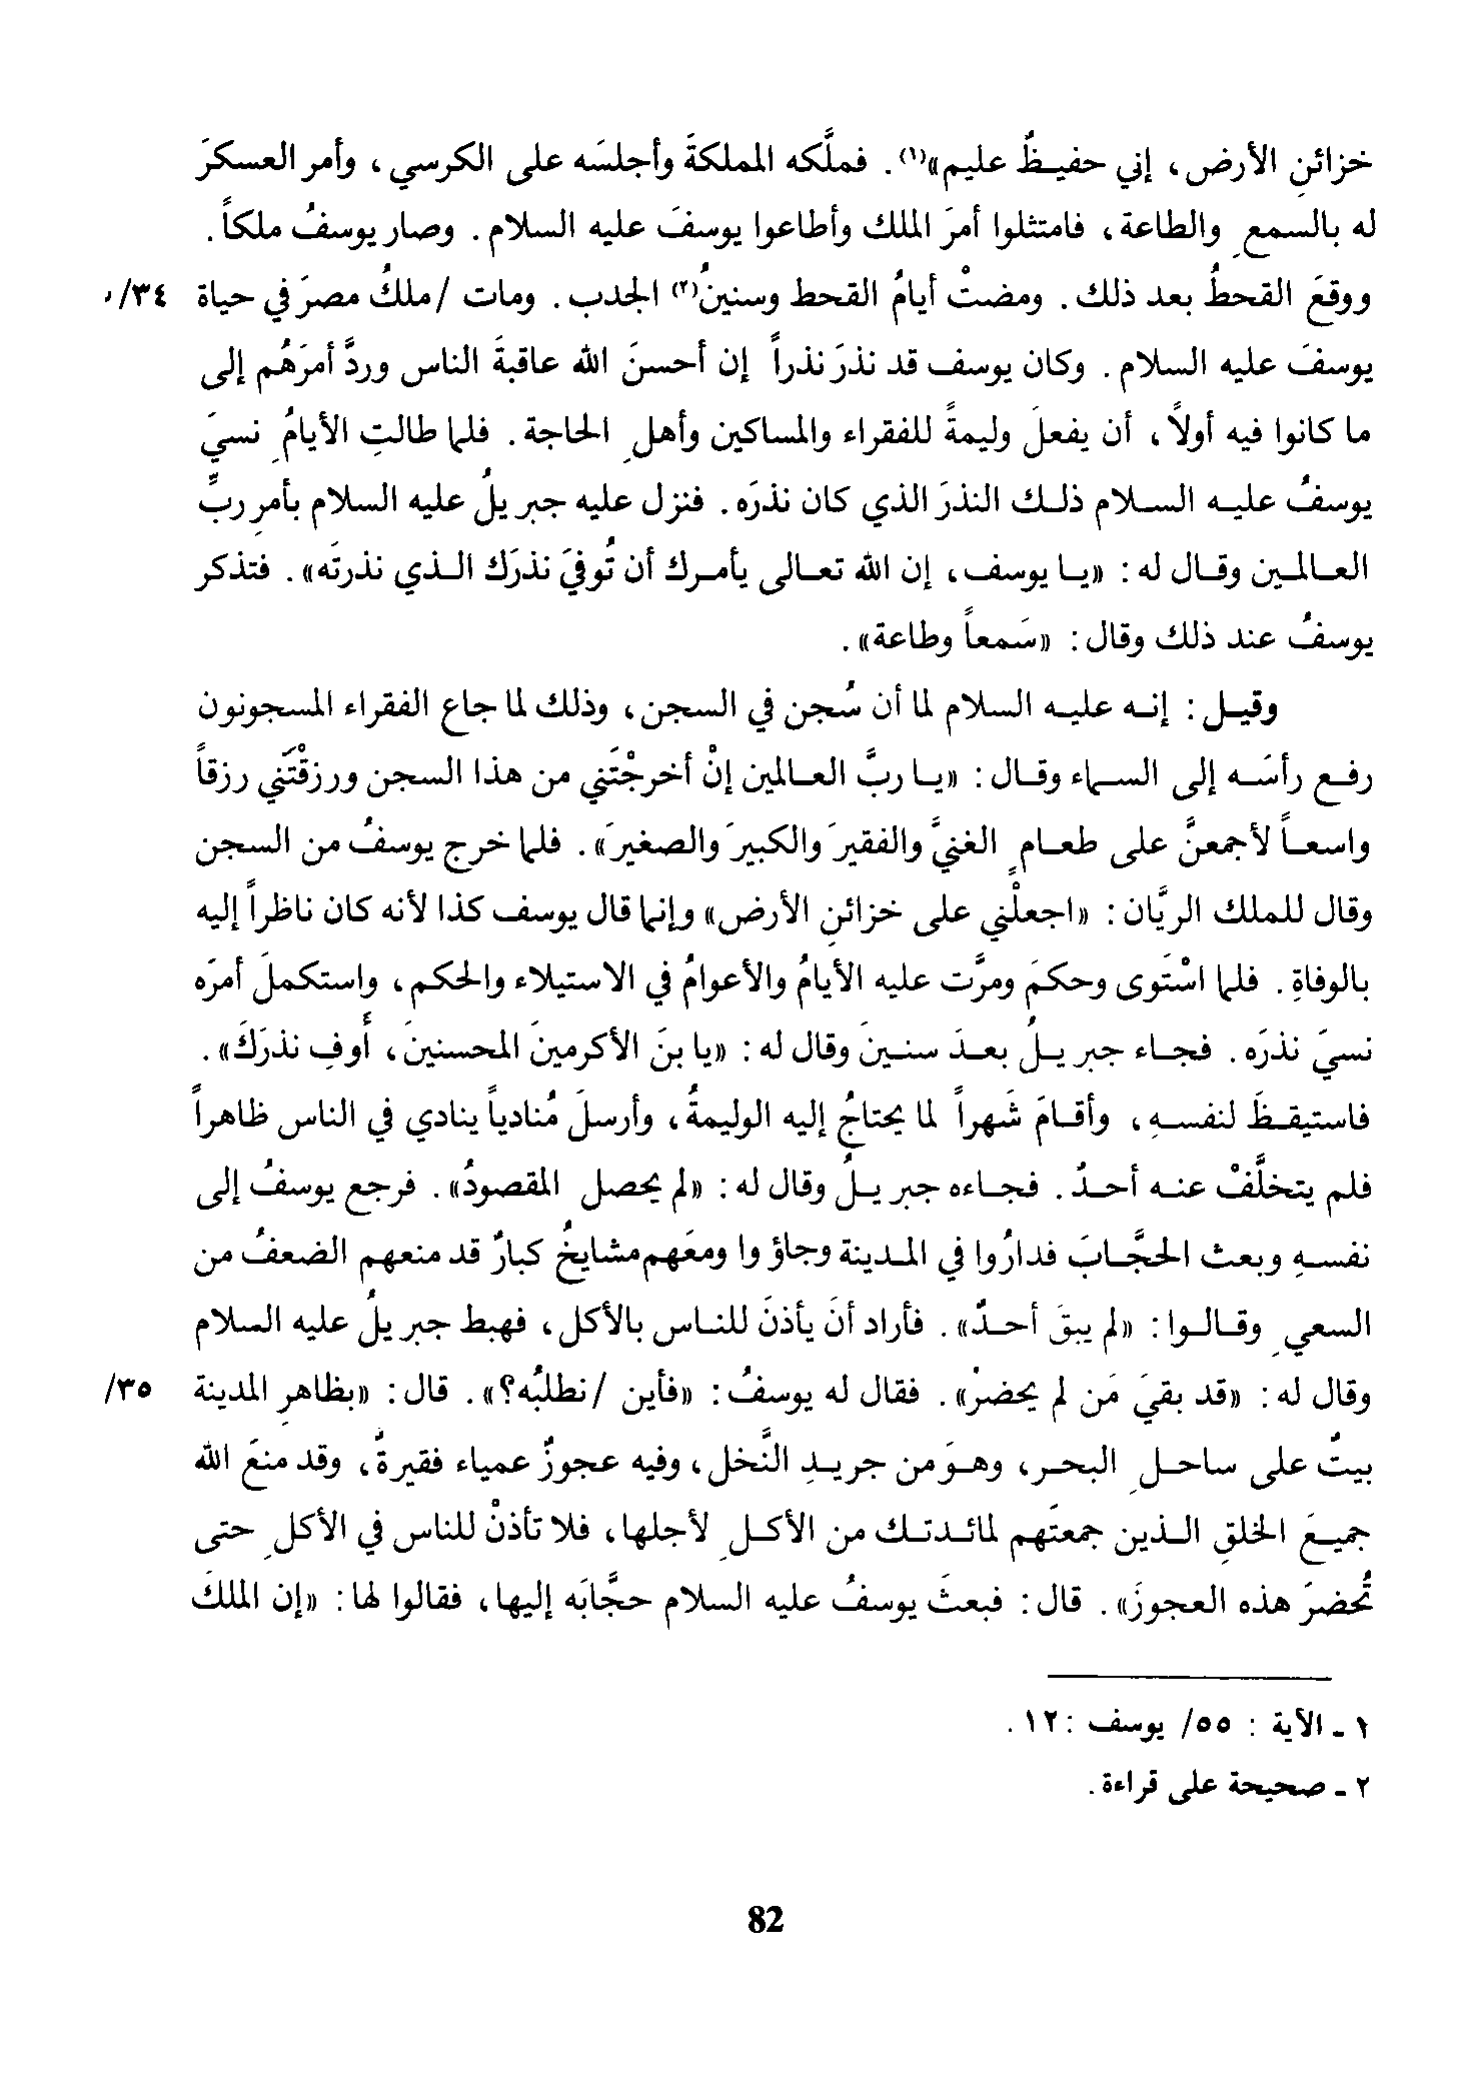 خزائنِ الأرض، إني حفيـظٌ عليم»(١). فملَّكه المملكةَ وأجلسَه على الكرسي، وأمر العسكرَ
له بالسمعِ والطاعة، فامتثلوا أمرَ الملك وأطاعوا يوسفَ عليه السلام. وصار يوسفُ ملكاً.
ووقعَ القحطُ بعد ذلك. ومضتْ أيامُ القحط وسنينُ(٢) الجدب. ومات /ملكُ مصرَ في حياة ٣٤/
يوسفَ عليه السلام. وكان يوسف قد نذرَ نذراً إن أحسنَ الله عاقبةَ الناس وردَّ أمرَهُم إلى
ما كانوا فيه أولاً، أن يفعلَ وليمةً للفقراء والمساكين وأهلِ الحاجة. فلما طالتِ الأيامُ نسيَ
يوسفُ عليـه السـلام ذلـك النذرَ الذي كان نذرَه. فنزل عليه جبريلُ عليه السلام بأمرِ ربِّ
العـالمـين وقـال له: «يـا يوسف، إن الله تعـالى يأمـرك أن تُوفيَ نذرَك الـذي نذرتَه». فتذكر
يوسفُ عند ذلك وقال: «سَمعاً وطاعة».
وقيـل: إنـه عليـه السلام لما أن سُجن في السجن، وذلك لما جاع الفقراء المسجونون
رفـع رأسَـه إلى السـماء وقـال: «يـا ربَّ العـالمين إنْ أخرجْتَني من هذا السجن ورزقْتَني رزقاً
واسعـاً لأجمعنَّ على طعـامٍ الغنيَّ والفقيرَ والكبيرَ والصغيرَ». فلما خرج يوسفُ من السجن
وقال للملك الريَّان: «اجعلْني على خزائنِ الأرض» وإنما قال يوسف كذا لأنه كان ناظراً إليه
بالوفاةِ. فلما اسْتَوى وحكمَ ومرَّت عليه الأيامُ والأعوامُ في الاستيلاء والحكم، واستكملَ أمرَه
نسيَ نذرَه. فجـاء جبريـلُ بعـدَ سنـينَ وقال له: «يا بنَ الأكرمينَ المحسنينَ، أَوفِ نذرَكَ».
فاستيقـظَ لنفسـهِ، وأقـامَ شَهراً لما يحتاجُ إليه الوليمةُ، وأرسلَ مُنادياً ينادي في الناس ظاهراً
فلم يتخلَّفْ عنـه أحـدٌ. فجـاءه جبريـلُ وقال له: «لم يحصل المقصودُ». فرجع يوسفُ إلى
نفسـهِ وبعث الحجَّـابَ فدارُوا في المـدينة وجاؤ وا ومعَهم مشايخُ كبارٌ قد منعهم الضعفُ من
السعيِ وقـالـوا: «لم يبقَ أحـدٌ». فأراد أنَ يأذنَ للنـاس بالأكل، فهبط جبريلُ عليه السلام
وقال له: «قد بقيَ مَن لم يحضرْ». فقال له يوسفُ: «فأين /نطلبُه؟». قال: «بظاهرِ المدينة ٣٥/
بيتٌ على ساحـلِ البحـر، وهـوَ من جريـدِ النَّخل، وفيه عجوزٌ عمياء فقيرةٌ، وقد منعَ الله
جميـعَ الخلقِ الـذين جمعتَهم لمائـدتـك من الأكـلِ لأجلها، فلا تأذنْ للناس في الأكلِ حتى
تُحضرَ هذه العجوزَ». قال: فبعثَ يوسفُ عليه السلام حجَّابَه إليها، فقالوا لها: «إن الملكَ
١ ـ الآية : ٥٥/ يوسف : ١٢.
٢ ـ صحيحة على قراءة.
82